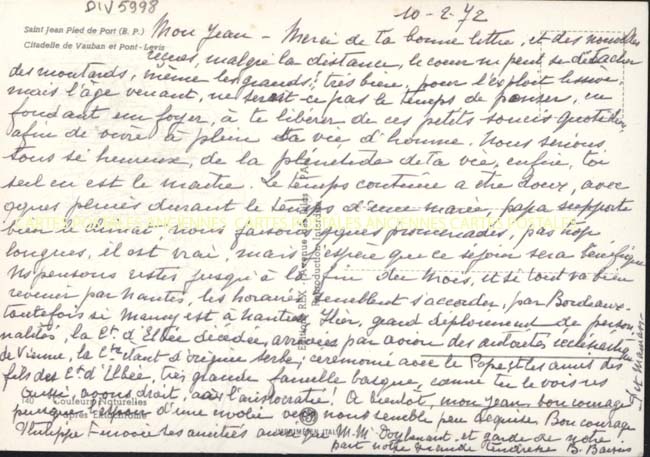 DIV5998
10-2-72
Saint Jean Pied de Port (B. P.)
Citadelle de Vauban et Pont-Levis
Mon Jean - Merci de ta bonne lettre, et des nouvelles
reçues, malgré la distance, le coeur ne peut se détacher
des moutards, même les grands! très bien, pour l'exploit
mais l'âge venant, ne serait-ce pas le temps de penser, en
fondant un foyer, à te libérer de ces petits soucis quotidiens
afin de vivre à plein ta vie d'homme. Nous serions
tous si heureux, de la plénitude de ta vie, enfin, toi
seul en est le maître. Le temps continue a être doux, avec
qques pluies durant le temps d'une marée papa supporte
bien le climat nous faisons qques promenades, pas trop
longues, il est vrai, mais j'espère que ce séjour sera bénéfique
Ns pensons rester jusqu'à la fin du mois, et si tout va bien
revenir par Nantes, les horaires semblent s'accorder, par Bordeaux-
toutefois si est à Nantes. Hier, grand déploiement de person
nalités, la Ct. d'Elbée décédée, arrivées par avion des autorités
de Vienne, la Ctesse étant d'origine serbe, cérémonie avec le et les amis des
fils des Ct d'Elbée, très grande famille basque, comme tu le vois ns
aussi, avons droit, à l'aristocratie! A bientôt, mon Jean, bon courage
puisque d'une nous semble peu Bon courage
Philippe envoie ses amitiés ainsi que M. Mme et garde de notre
part notre grande tendresse B.
et Maman
CARTES POSTALES ANCIENNES CARTES POSTALES ANCIENNES CARTES POSTALES
140 Couleurs Naturelles
d'après Ektachrome
IMPRIMÉ EN ITALIE